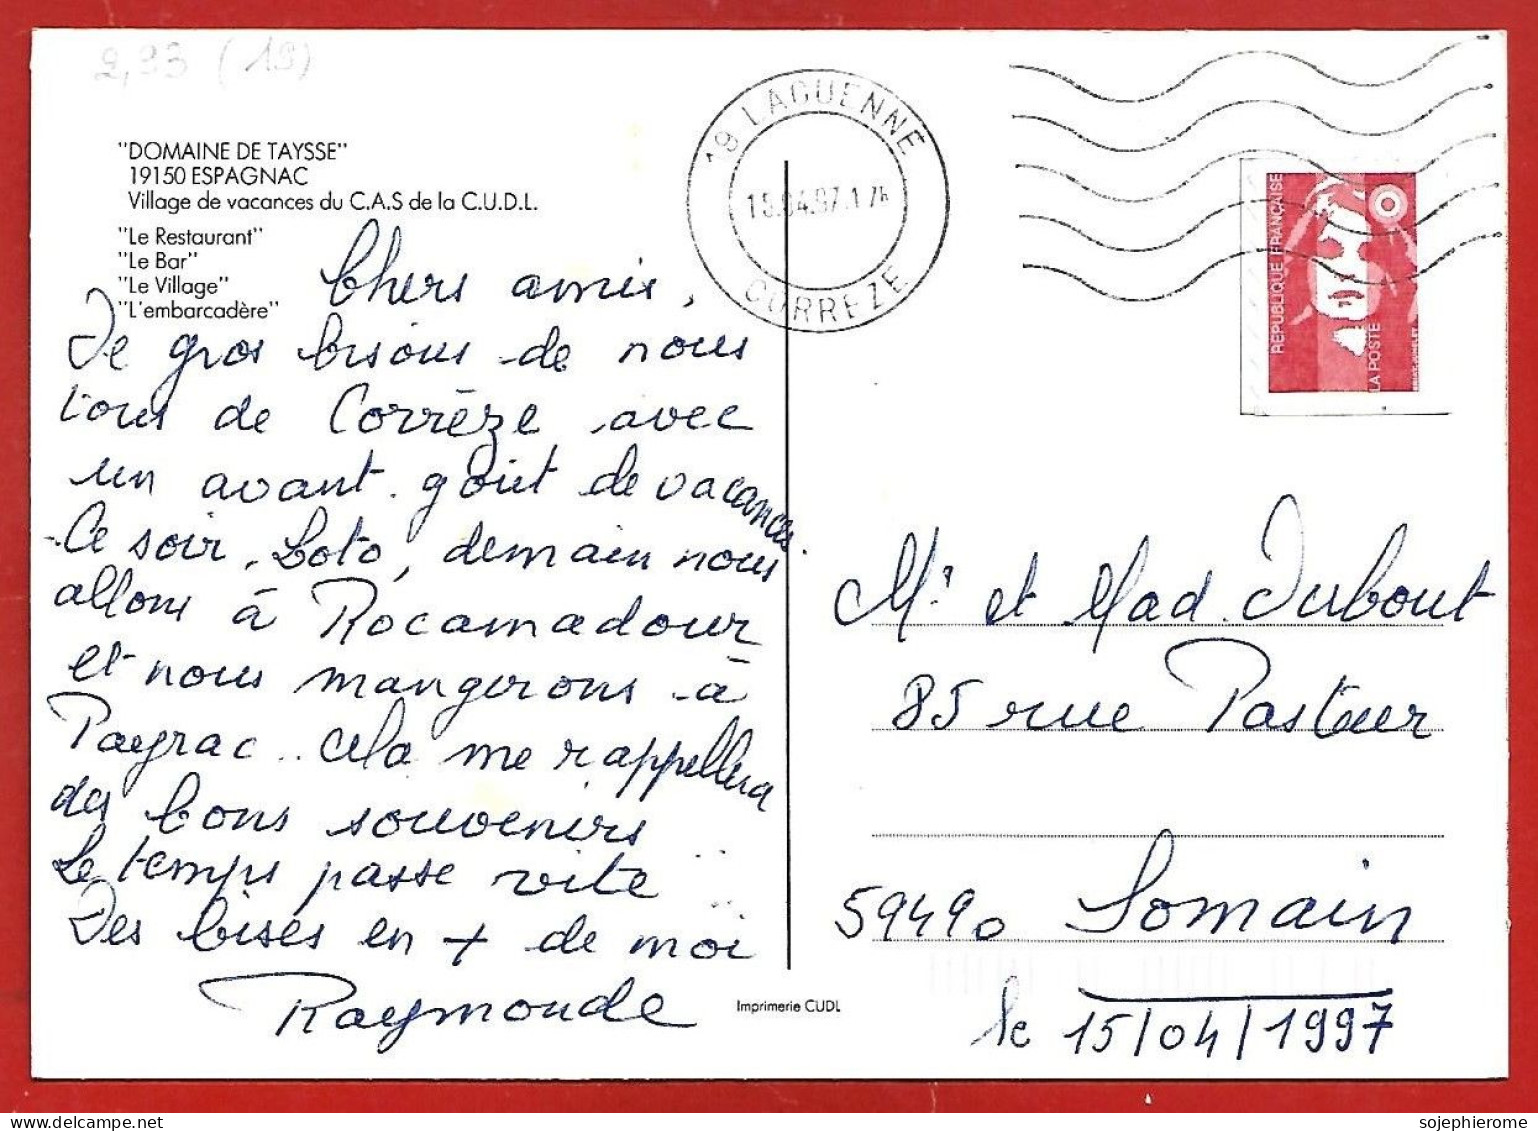 2,33 (19)
"DOMAINE DE TAYSSE"
19150 ESPAGNAC
Village de vacances du C.A.S de la C.U.D.L.
"Le Restaurant"
"Le Bar"
"Le Village"
"L'embarcadère"
19 LAGUENNE
15.04.97.17H
CORREZE
REPUBLIQUE FRANÇAISE
LA POSTE
Chers amis,
De gros bisous de nous
tous de Corrèze avec
un avant. goût de vacances.
Ce soir, Loto, demain nous
allons à Rocamadour
et nous mangerons à
Payrac.. cela me rappellera
des bons souvenirs
Le temps passe vite ...
Des bises en + de moi
Raymonde
Mr et Mad. Dubout
85 rue Pasteur
59490 Somain
le 15/04/1997
Imprimerie CUDL
sojephierome